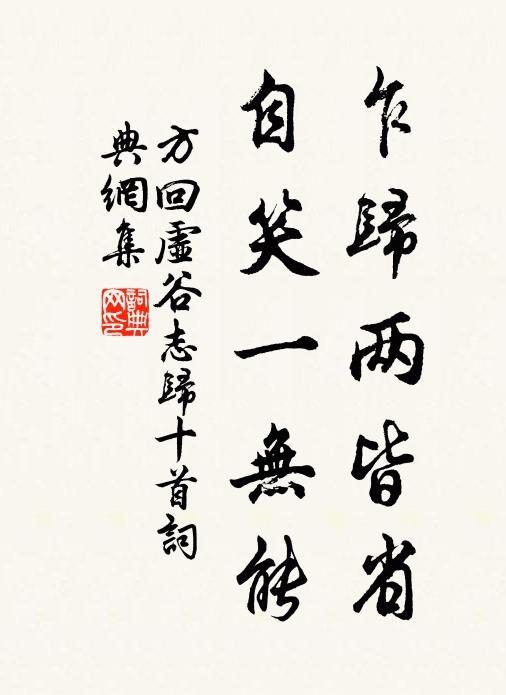 乍歸两皆省
自笑一無能
方回虛谷志歸十首詞
典網集
詞典网印